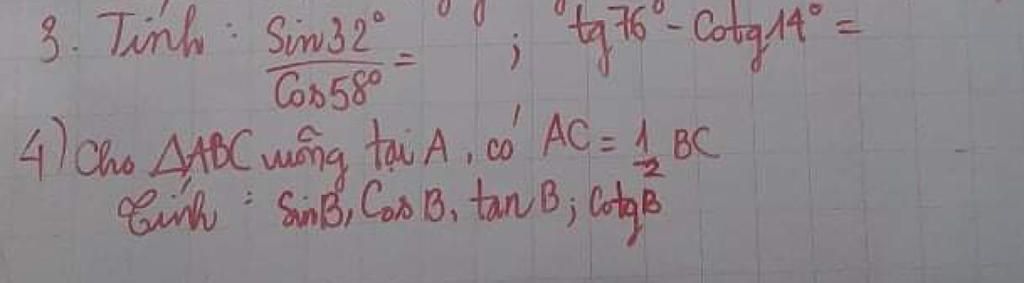 3. Tính: Sin32°/Cos58° = ; tg76° - Cotg14° =
4) Cho ΔABC vuông tại A, có AC = 1/2 BC
Tính: SinB, CosB, tanB; CotgB